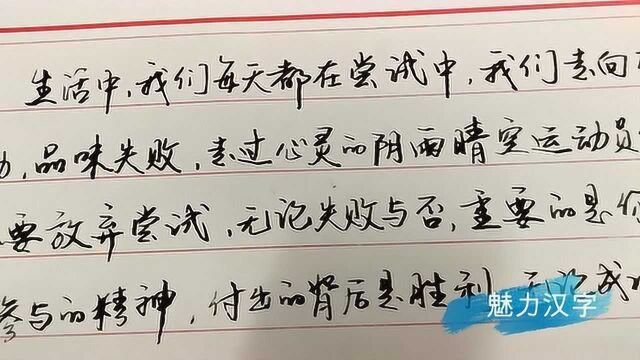 生活中,我们每天都在尝试中,我们走向
,品味失败,走过心灵的阴雨晴空运动员
要放弃尝试,无论失败与否,重要的是你
参与的精神,付出的背后是胜利,无论成
魅力汉字